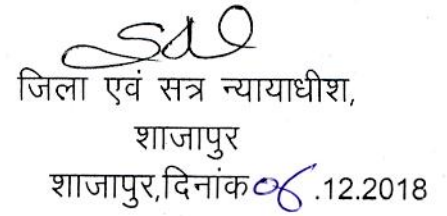 जिला एवं सत्र न्यायाधीश,
शाजापुर
शाजापुर,दिनांक 06 .12.2018